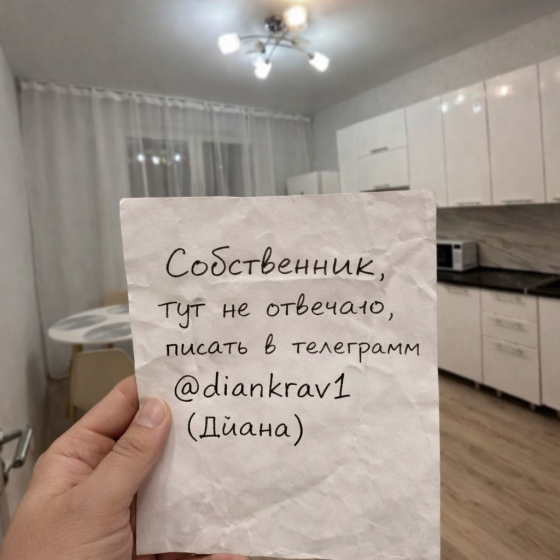 Собственник,
тут не отвечаю,
писать в телеграмм
@diankrav1
(Дйана)